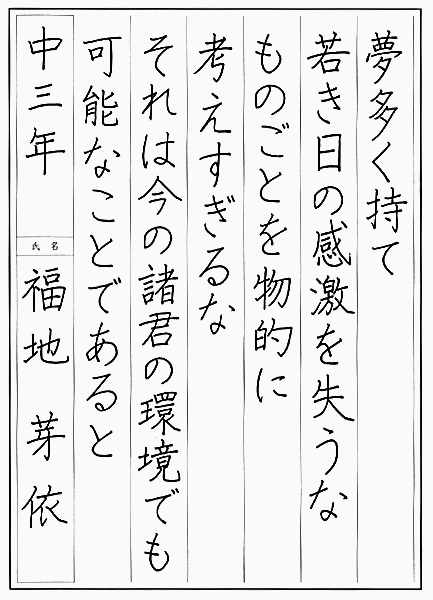 夢多く持て
若き日の感激を失うな
ものごとを物的に
考えすぎるな
それは今の諸君の環境でも
可能なことであると
中三年
氏名
福地 芽依